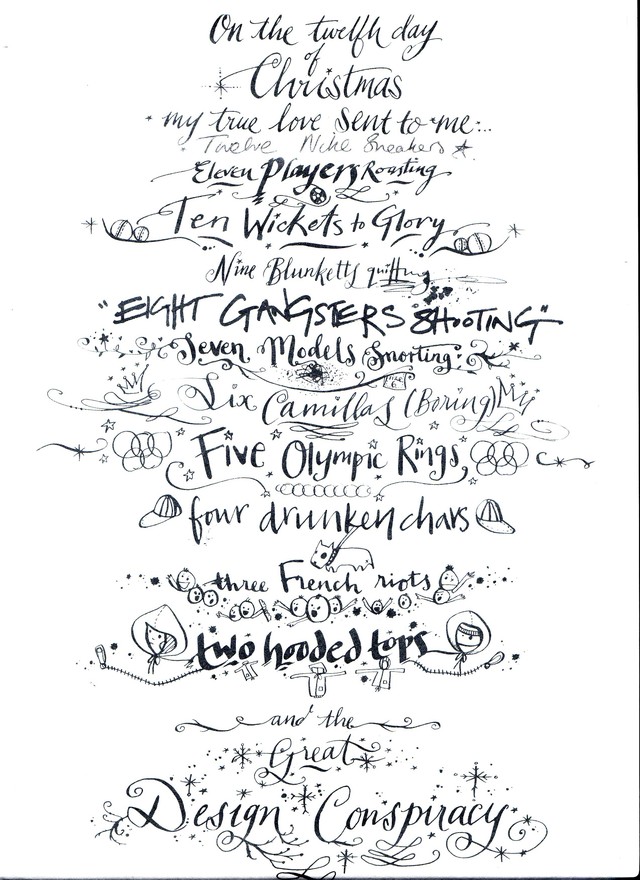 On the twelfth day
of
Christmas
my true love sent to me...
Twelve Nike Sneakers
Eleven Players Roasting
Ten Wickets to Glory
Nine Blunketts quitting
"EIGHT GANGSTERS SHOOTING"
Seven Models Snorting
Six Camillas (Boring)
Five Olympic Rings,
four drunken chavs
three French riots
two hooded tops
and the
Great
Design Conspiracy